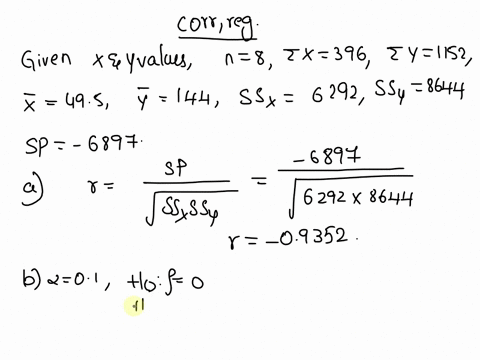 corr, reg.
Given x & y values, n=8, ΣX=396, ΣY=1152,
x̄ = 49.5, ȳ = 144, SSx = 6292, SSy=8644
SP = -6897.
a) r = SP / √SSxSSy = -6897 / √6292 x 8644
r = -0.9352.
b) α=0.1, Ho: ρ= 0